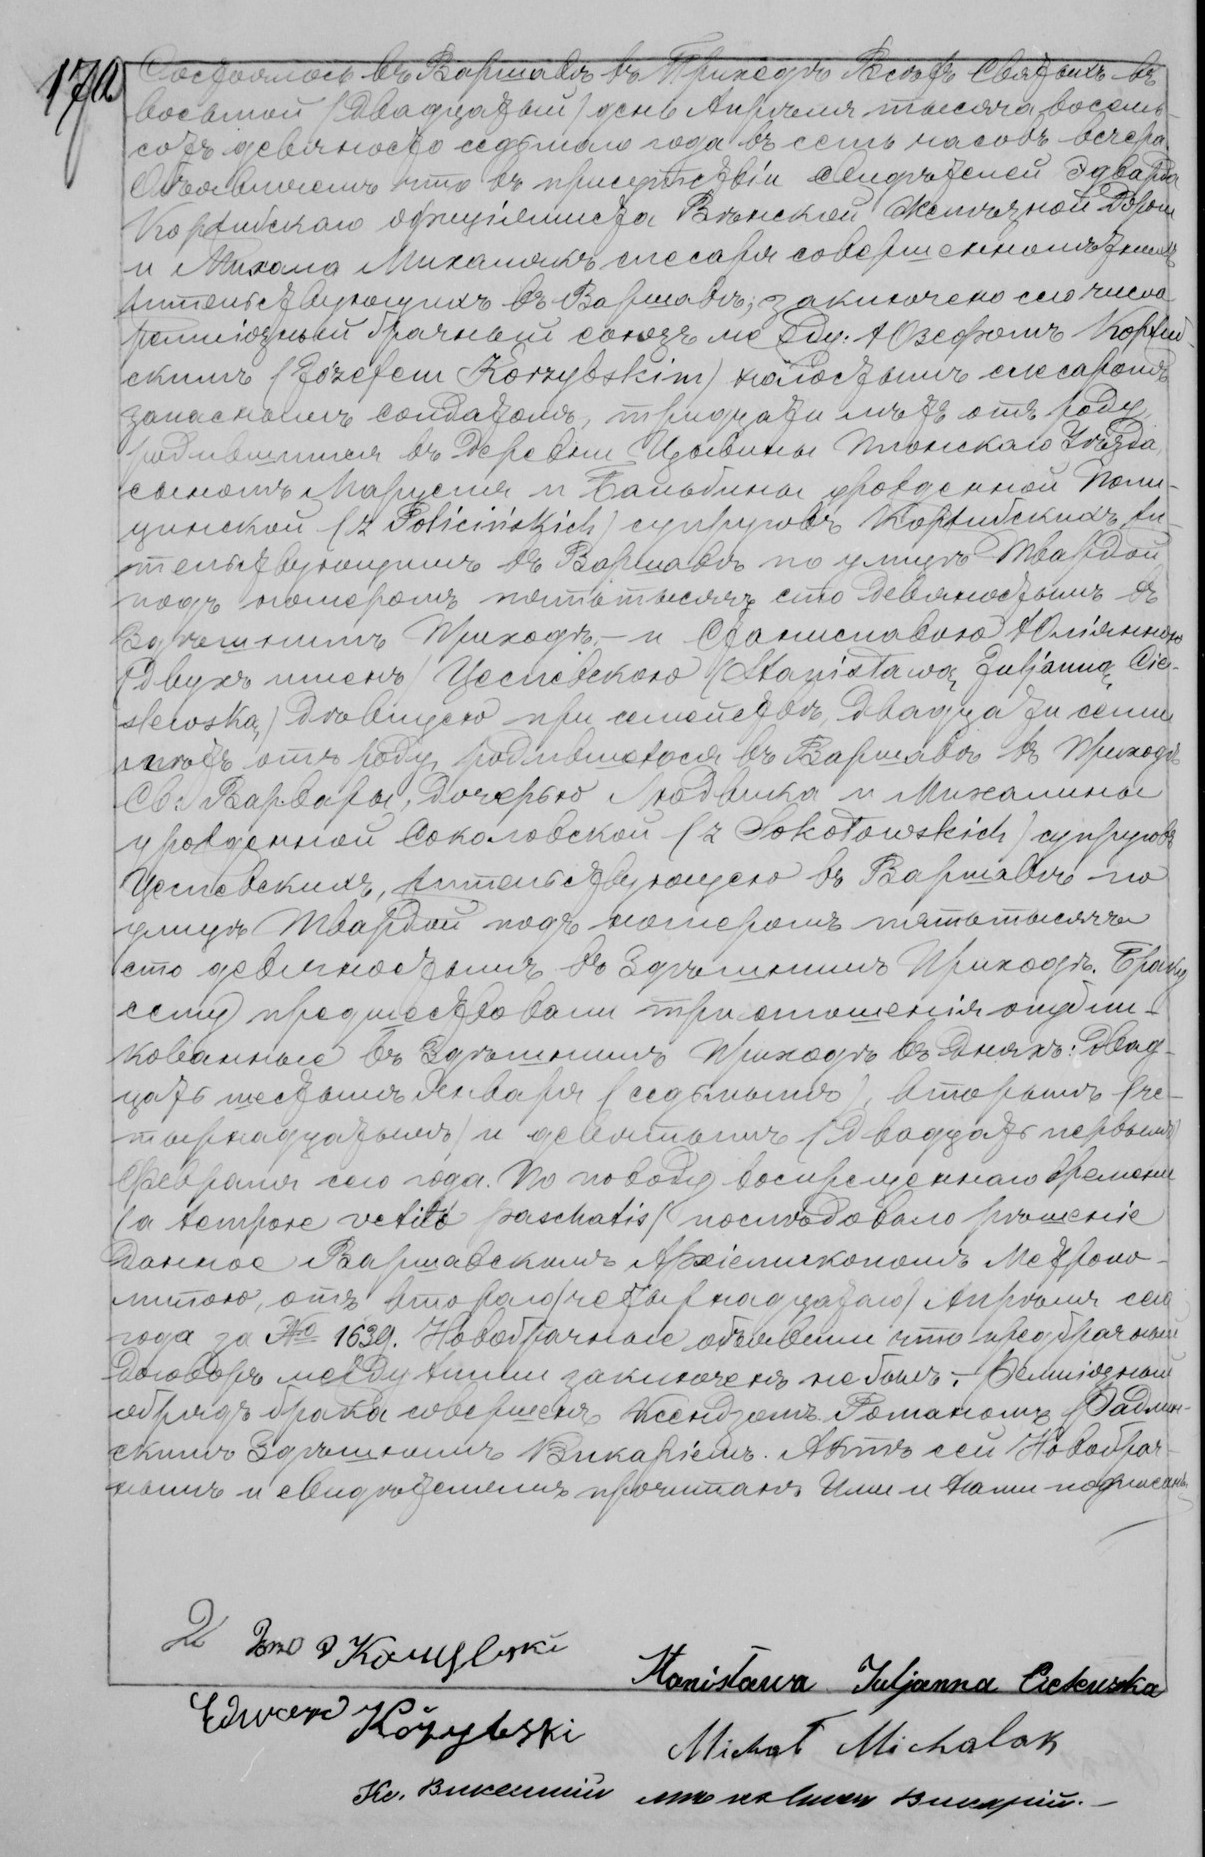 170
Состоялось въ Варшавѣ въ Приходѣ Всѣхъ Святыхъ въ
восьмой (двадцатый) день Апрѣля тысяча восемь-
сотъ девяносто седьмаго года въ семь часовъ вечера.
Объявляемъ что въ присутствіи свидѣтелей Эдварда
Коржибскаго оффиціялиста Вѣнской Желѣзной Дороги
и Михала Михаляка слесаря совершеннолѣтнихъ
жительствующихъ въ Варшавѣ; заключено сего числа
религіозный брачный союзъ между: Юзефомъ Коржиб-
скимъ (Józefem Korzybskim) холостымъ слесаромъ
запаснымъ солдатомъ, тридцати лѣтъ отъ роду,
родившимся въ деревни Цывины Плонскаго Уѣзда,
сыномъ Марцелія и Бальбины урожденной Поли-
цинской (z Policińskich) супруговъ Коржибскихъ, жи-
тельствующимъ въ Варшавѣ по улицѣ Твардой
подъ номеромъ пятьтысячъ сто девяностымъ въ
Здѣшнимъ Приходѣ, — и Станиславою Юліянною
(двухъ именъ) Цеслевскою (Stanisławą Juljanną Cie-
slewską) дѣвицею при семействѣ, двадцати семи
лѣтъ отъ роду, родившеюся въ Варшавѣ въ Приходѣ
Св. Варвары, дочерью Людвика и Михалины
урожденной Соколовской (z Sokołowskich) супруговъ
Цеслевскихъ, жительствующею въ Варшавѣ по
улицѣ Твардой подъ номеромъ пятьтысячъ
сто девяностымъ въ Здѣшнимъ Приходѣ. Браку
сему предшествовали три оглашенія опубли-
кованные въ Здѣшнимъ Приходѣ въ дняхъ: двад-
цать шестымъ Января (седьмымъ), вторымъ (че-
тырнадцатымъ) и девятымъ (двадцать первымъ)
Февраля сего года. По поводу воспрещеннаго времени
(a tempore vetito paschatis) послѣдовало рѣшеніе
данное Варшавскимъ Архіепископомъ Метропо-
литою, отъ втораго (четырнадцатаго) Апрѣля сего
года за № 1639. Новобрачные объявили что предбрачный
договоръ между ними заключенъ не былъ. Религіозный
обрядъ брака совершенъ Ксендзомъ Романомъ
скимъ Здѣшнымъ Викаріемъ. Актъ сей Новобрач-
нымъ и свидѣтелямъ прочитанъ Ими и Нами подписанъ.
Korzybski
Stanisława Juljanna Cieslewska
Edward Kożybski
Michał Michalak
Кс. Викентій Викарій. —